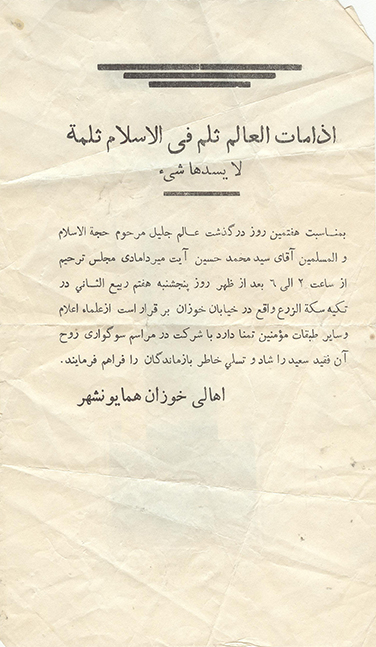 اذامات العالم ثلم فی الاسلام ثلمة
لا یسدها شیء
بمناسبت هفتمین روز درگذشت عالم جلیل مرحوم حجة الاسلام
و المسلمین آقای سید محمد حسین آیت میردامادی مجلس ترحیم
از ساعت ۲ الی ۶ بعد از ظهر روز پنجشنبه هفتم ربیع الثانی در
تکیه سکة الزرع واقع در خیابان خوزان بر قرار است ازعلماء اعلام
وسایر طبقات مؤمنین تمنا دارد با شرکت در مراسم سوگواری روح
آن فقید سعید را شاد و تسلی خاطر بازماندگان را فراهم فرمایند.
اهالی خوزان همایونشهر